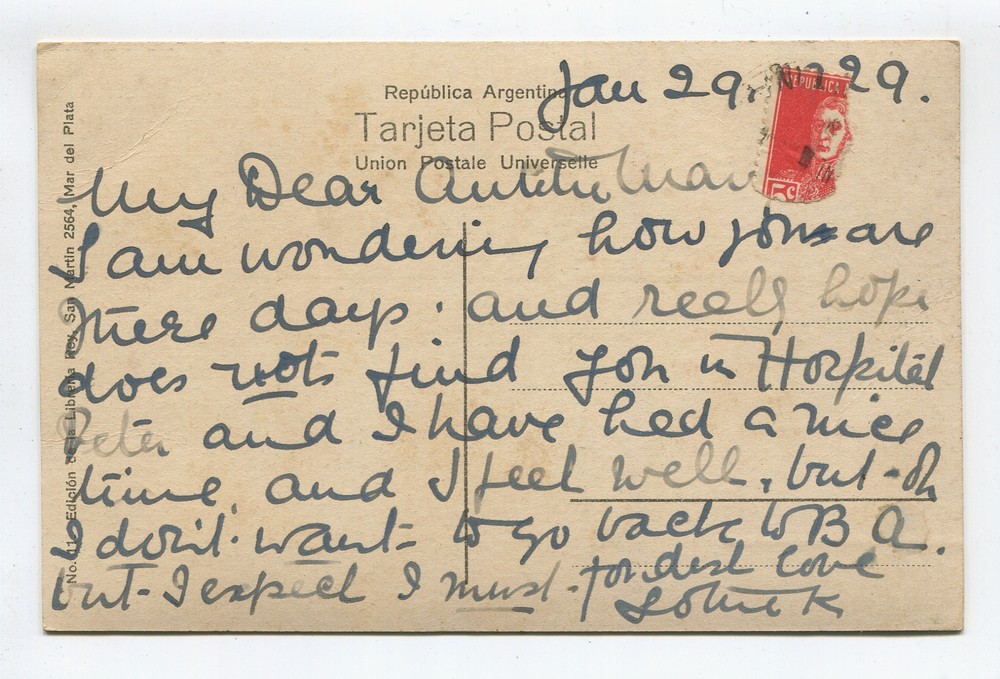 Jan 29. 29.
REPUBLICA
5c
República Argentina
Tarjeta Postal
Union Postale Universelle
My Dear Man
I am wondering how you are
these days. and really hope
does not find you in Hospital
Peter and I have had a nice
time. and I feel well. but - oh
I don't want to go back to B A.
but - I expect I must - fondest love
No. 11 - Edición de la Librería Rey, San Martin 2564, Mar del Plata